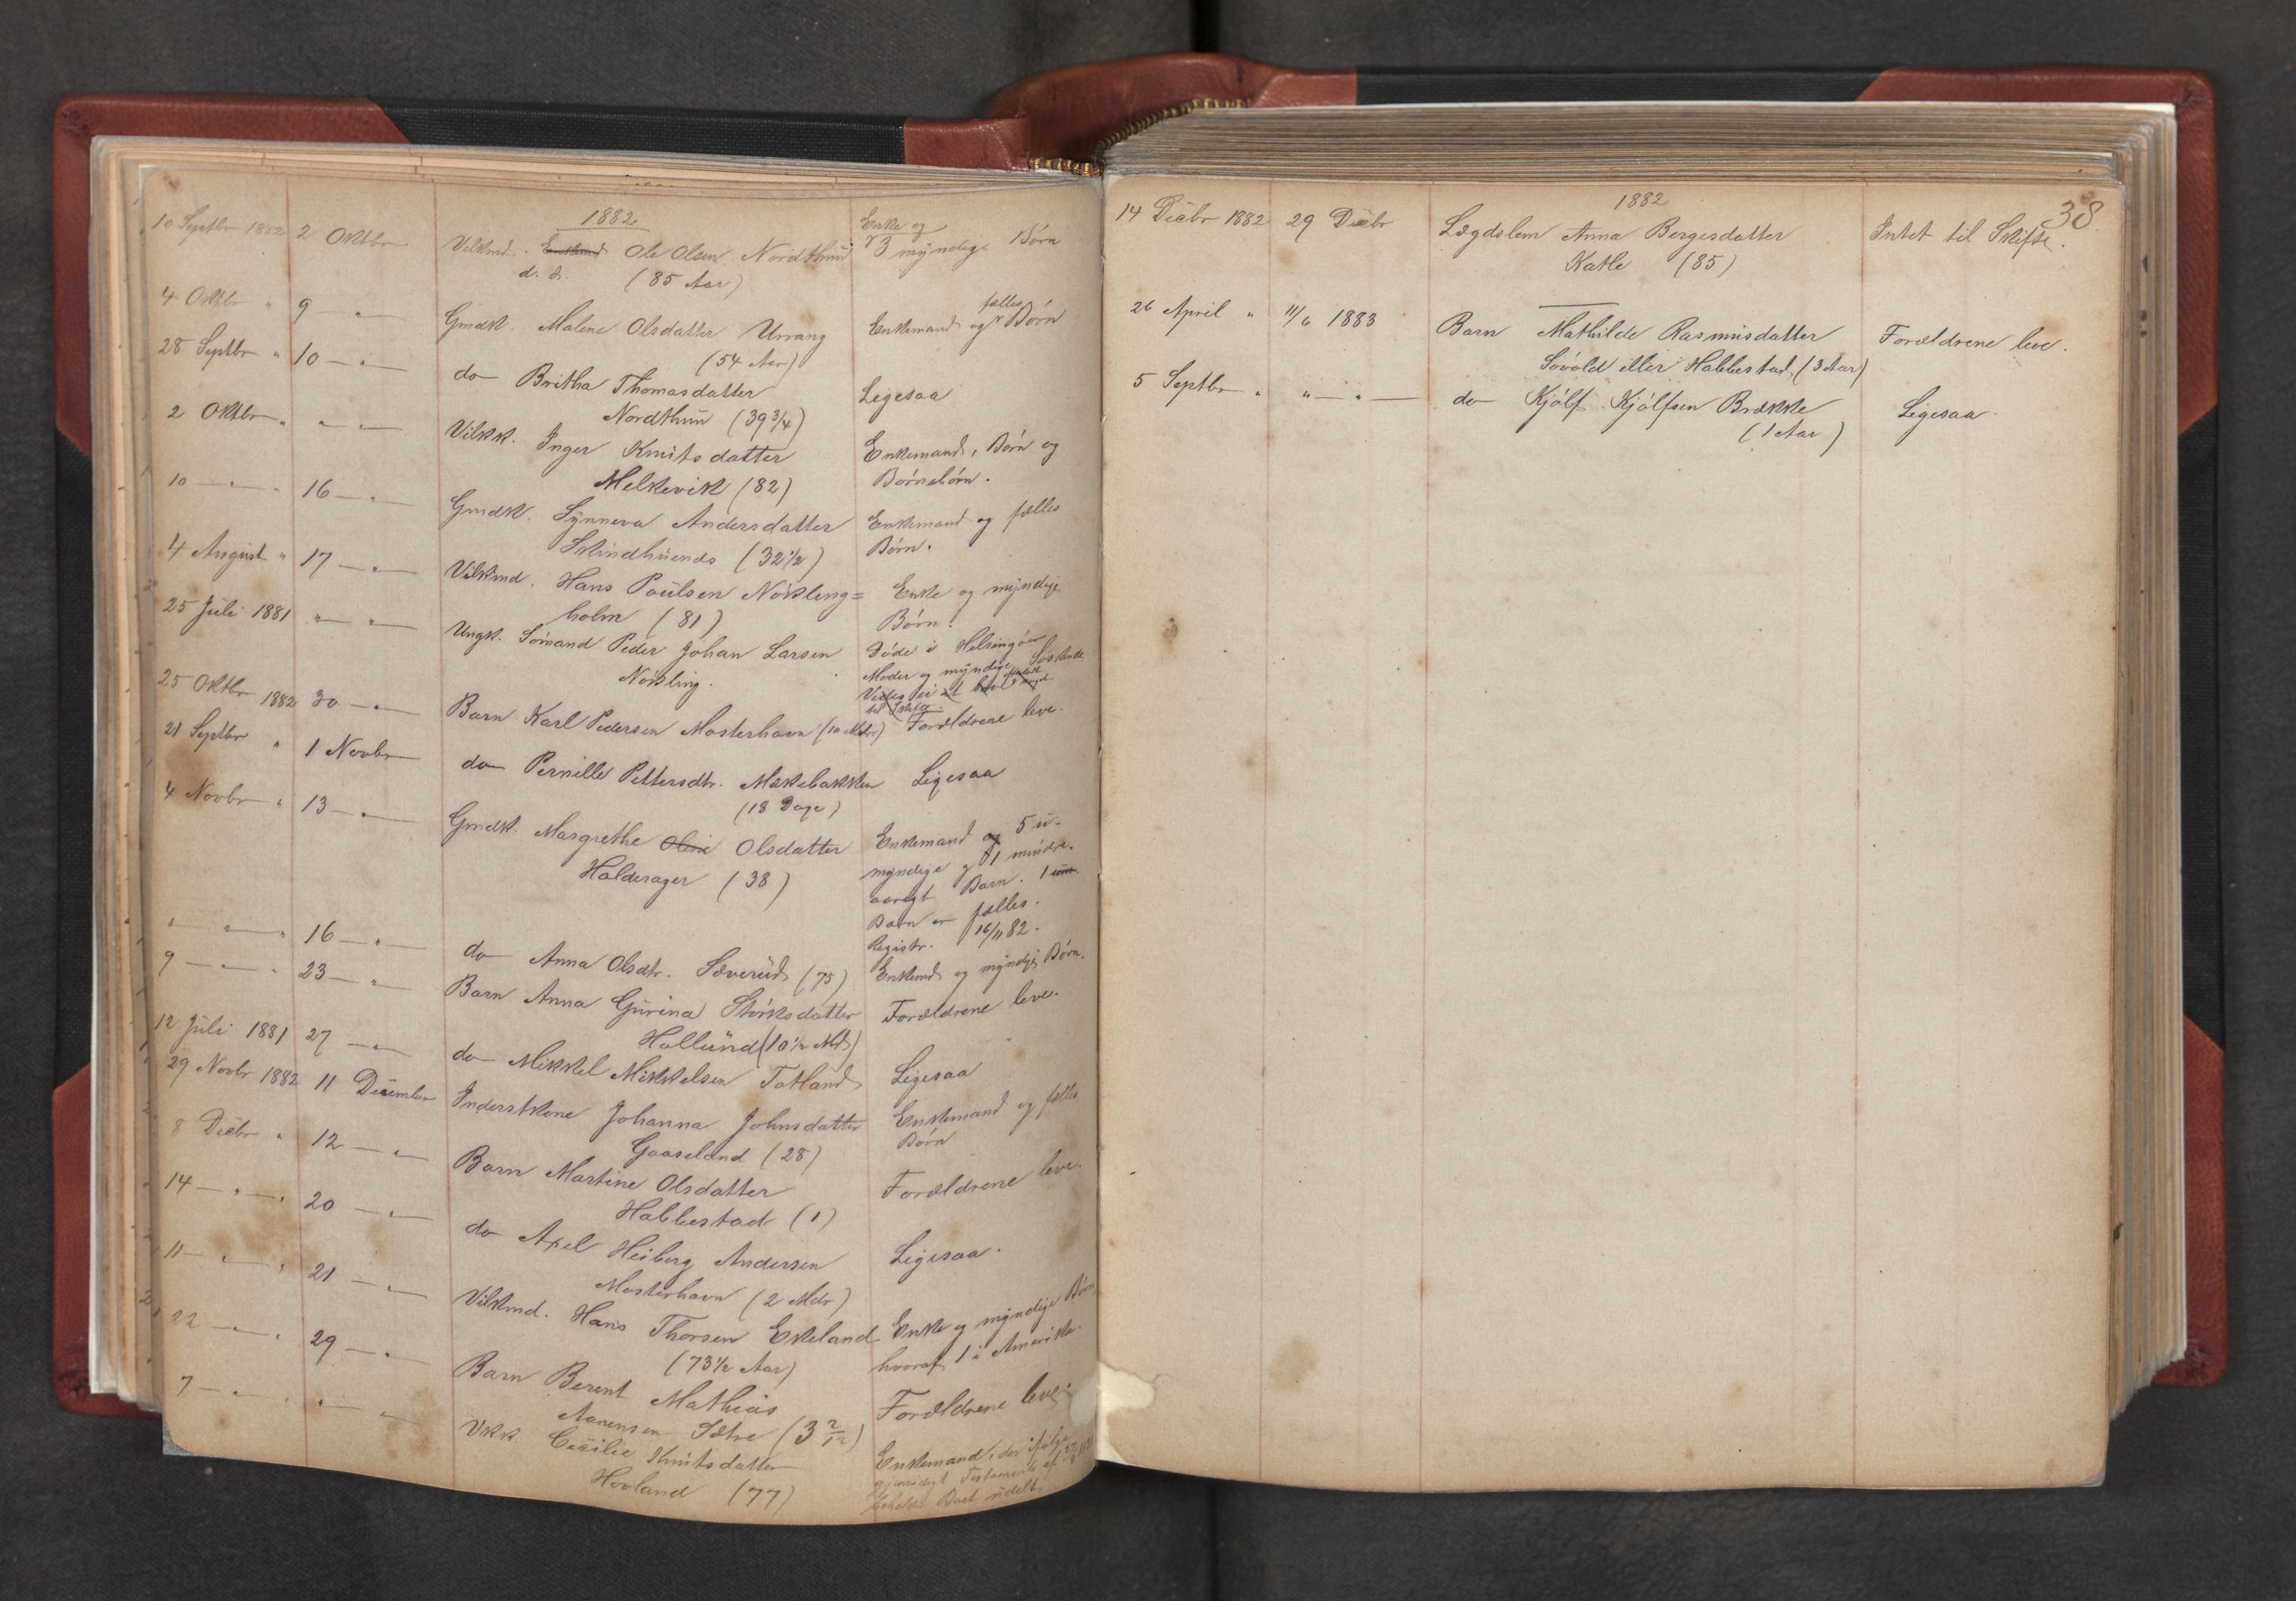 1882
10 Septbr 1882 2 Oktbr Vilkmd. Enkemd Ole Olsen Nordthun Enke og
d. æ. (85 Aar) 3 myndige Børn
4 Oktbr " 9 — " — Gmdk. Malene Olsdatter Urrang Enkemand og fælles Børn
(54 Aar)
28 Septbr " 10 — " — do Britha Thomasdatter Ligesaa
Nordthun (39 3/4)
2 Oktbr " " — " — Vilkk. Inger Knutsdatter Enkemand, Børn og
Melkevik (82) Børnebørn.
10 — " — " 16 — " — Gmdk. Synneva Andersdatter Enkemand og fælles
(32 1/2) Børn.
4 August " 17 — " — Vilkmd. Hans Poulsen Nøkling= Enke og myndige
holm (81) Børn.
25 Juli 1881 " — " — Ungk. Sømand Peder Johan Larsen Døde i Helsingør
Nøkling. Moder og myndige Søskende
Vides ei at
til Skifte.
25 Oktbr 1882 30 — " — Barn Karl Pedersen Mosterhavn (10 Mdr.) Forældrene leve.
21 Septbr " 1 Novbr do Pernille Pettersdtr. Mækebakken Ligesaa
(18 Dage)
4 Novbr " 13 — " — Gmdk. Margrethe Oline Olsdatter Enkemand og 5 u-
Halderager (38) myndige og 1 mindre-
aarigt Barn. 1 um.
Barn er fælles.
Registr. 16/11 82.
" — " — " 16 — " — do Anna Olsdtr. Sæverud (75) Enkemd og myndige Børn.
9 — " — " 23 — " — Barn Anna Gurina Størksdatter Forældrene leve.
Hallund (10 1/2 Md)
12 Juli 1881 27 — " — do Mikkel Mikkelsen Totland Ligesaa
29 Novbr 1882 11 December Inderstkone Johanna Johnsdatter Enkemand og fælles
Gaaseland (28) Børn
8 Decbr " 12 — " — Barn Martine Olsdatter Forældrene leve.
Habbestad (1)
14 — " — " 20 — " — do Axel Heiberg Andersen Ligesaa.
Mosterhavn (2 Mdr)
11 — " — " 21 — " — Vilkmd. Hans Thorsen Ekeland Enke og myndige Børn,
(73 1/2 Aar) hvoraf 1 i Amerika.
22 — " — " 29 — " — Barn Berent Mathias Forældrene leve.
Aanensen Sætre (3 2/12)
7 — " — " " — " — Vkk. Cecilie Knutsdatter Enkemand, der ifølge
Hovland (77) gjensidigt Testamente af
beholder Boet udelt.
38
1882
14 Decbr 1882 29 Decbr Lægdslem Anna Børgesdatter Intet til Skifte.
Katle (85)
26 April " 11/6 1883 Barn Mathilde Rasmusdatter Forældrene leve.
Søvold eller Habbestad (3 Aar)
5 Septbr " " — " — do Kjølf Kjølfsen Brække Ligesaa
(1 Aar)